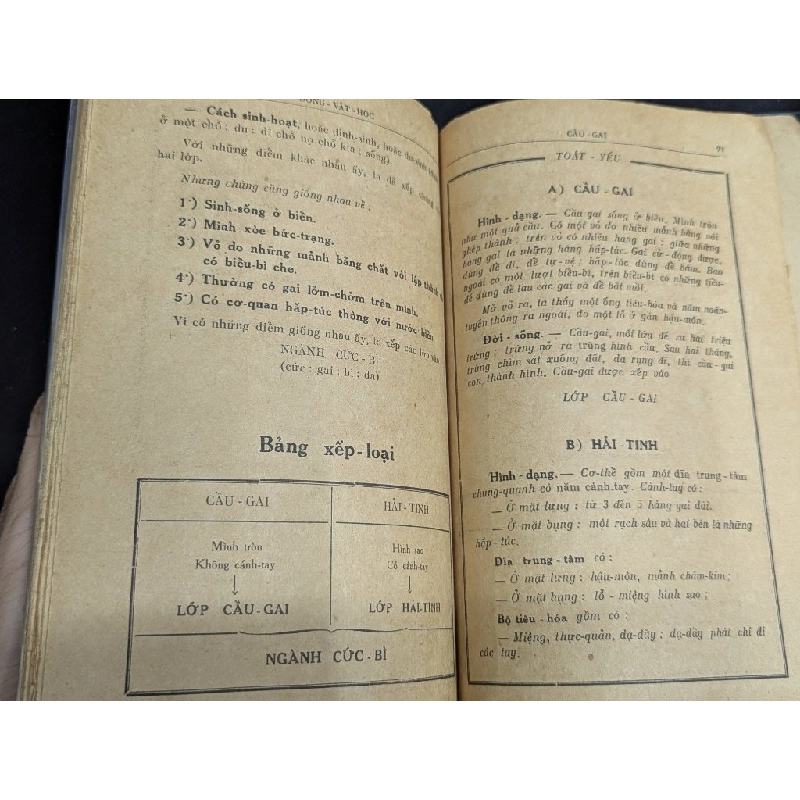 ĐỘNG - VẬT - HỌC
— Cách sinh-hoạt, hoặc định-sinh, hoặc
ở một chỗ ; du : đi chỗ nọ chỗ kia ; sống)
Với những điểm khác nhau ấy, ta đã xếp chúng
hai lớp.
Nhưng chúng cũng giống nhau về :
1·) Sinh-sống ở biển.
2·) Mình xòe bức-trạng.
3·) Vỏ do những mảnh bằng chất vôi lớp
có biểu-bì che.
4·) Thường có gai lởm-chởm trên mình.
5·) Có cơ-quan hấp-túc thông với nước biển
Vì có những điểm giống nhau ấy, ta xếp các lớp vào
NGÀNH CỨC - B
(cức : gai ; bì : da)
Bảng xếp-loại
CẦU - GAI
HẢI - TINH
Mình tròn
Không cánh-tay
Hình sao
Có cánh-tay
LỚP CẦU - GAI
LỚP HẢI-TINH
NGÀNH CỨC - BÌ
CẦU - GAI
91
TOÁT - YẾU
A) CẦU - GAI
Hình - dạng. — Cầu-gai sống ở biển. Mình tròn
như một quả cầu. Có một vỏ do nhiều mảnh bằng vôi
ghép thành ; trên vỏ có nhiều hàng gai ; giữa những
hàng gai là những hàng hấp-túc. Gai cử-động được,
dùng để đi, để tự-vệ ; hấp-túc dùng để bám. Bên
ngoài có một lượt biểu-bì, trên biểu-bì có những tiểu-
để dùng để lau các gai và để bắt mồi.
Mổ vỏ ra, ta thấy một ống tiêu-hóa và năm noãn-
tuyến thông ra ngoài, do một lỗ ở gần hậu-môn.
Đời - sống. — Cầu-gai, mỗi lứa đẻ ra hai triệu
trứng ; trứng nở ra trùng hình cầu. Sau hai tháng,
trùng chìm sát xuống đất, da rụng đi, thì cầu-gai
con, thành hình. Cầu-gai được xếp vào
LỚP CẦU - GAI
B) HẢI - TINH
Hình - dạng. — Cơ-thể gồm một đĩa trung-tâm
chung-quanh có năm cánh-tay. Cánh-tay có :
— Ở mặt lưng : từ 3 đến 5 hàng gai dài.
— Ở mặt bụng : một rạch sâu và hai bên là những
hấp - túc.
Đĩa trung - tâm có :
— Ở mặt lưng : hậu-môn, mảnh châm-kim ;
— Ở mặt bụng : lỗ - miệng hình sao ;
Bộ tiêu - hóa gồm có :
— Miệng, thực-quản, dạ-dầy ; dạ-dầy phát chi đi
các tay.